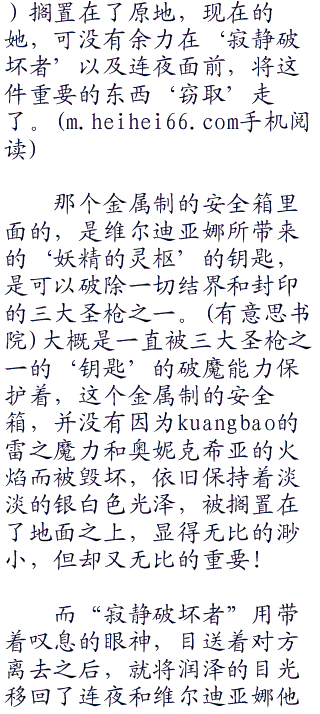 ）搁置在了原地，现在的
她，可没有余力在‘寂静破
坏者’以及连夜面前，将这
件重要的东西‘窃取’走
了。(m.heihei66.com手机阅
读)
那个金属制的安全箱里
面的，是维尔迪亚娜所带来
的‘妖精的灵枢’的钥匙，
是可以破除一切结界和封印
的三大圣枪之一。(有意思书
院)大概是一直被三大圣枪之
一的‘钥匙’的破魔能力保
护着，这个金属制的安全
箱，并没有因为kuangbao的
雷之魔力和奥妮克希亚的火
焰而被毁坏，依旧保持着淡
淡的银白色光泽，被搁置在
了地面之上，显得无比的渺
小，但却又无比的重要！
而“寂静破坏者”用带
着叹息的眼神，目送着对方
离去之后，就将润泽的目光
移回了连夜和维尔迪亚娜他